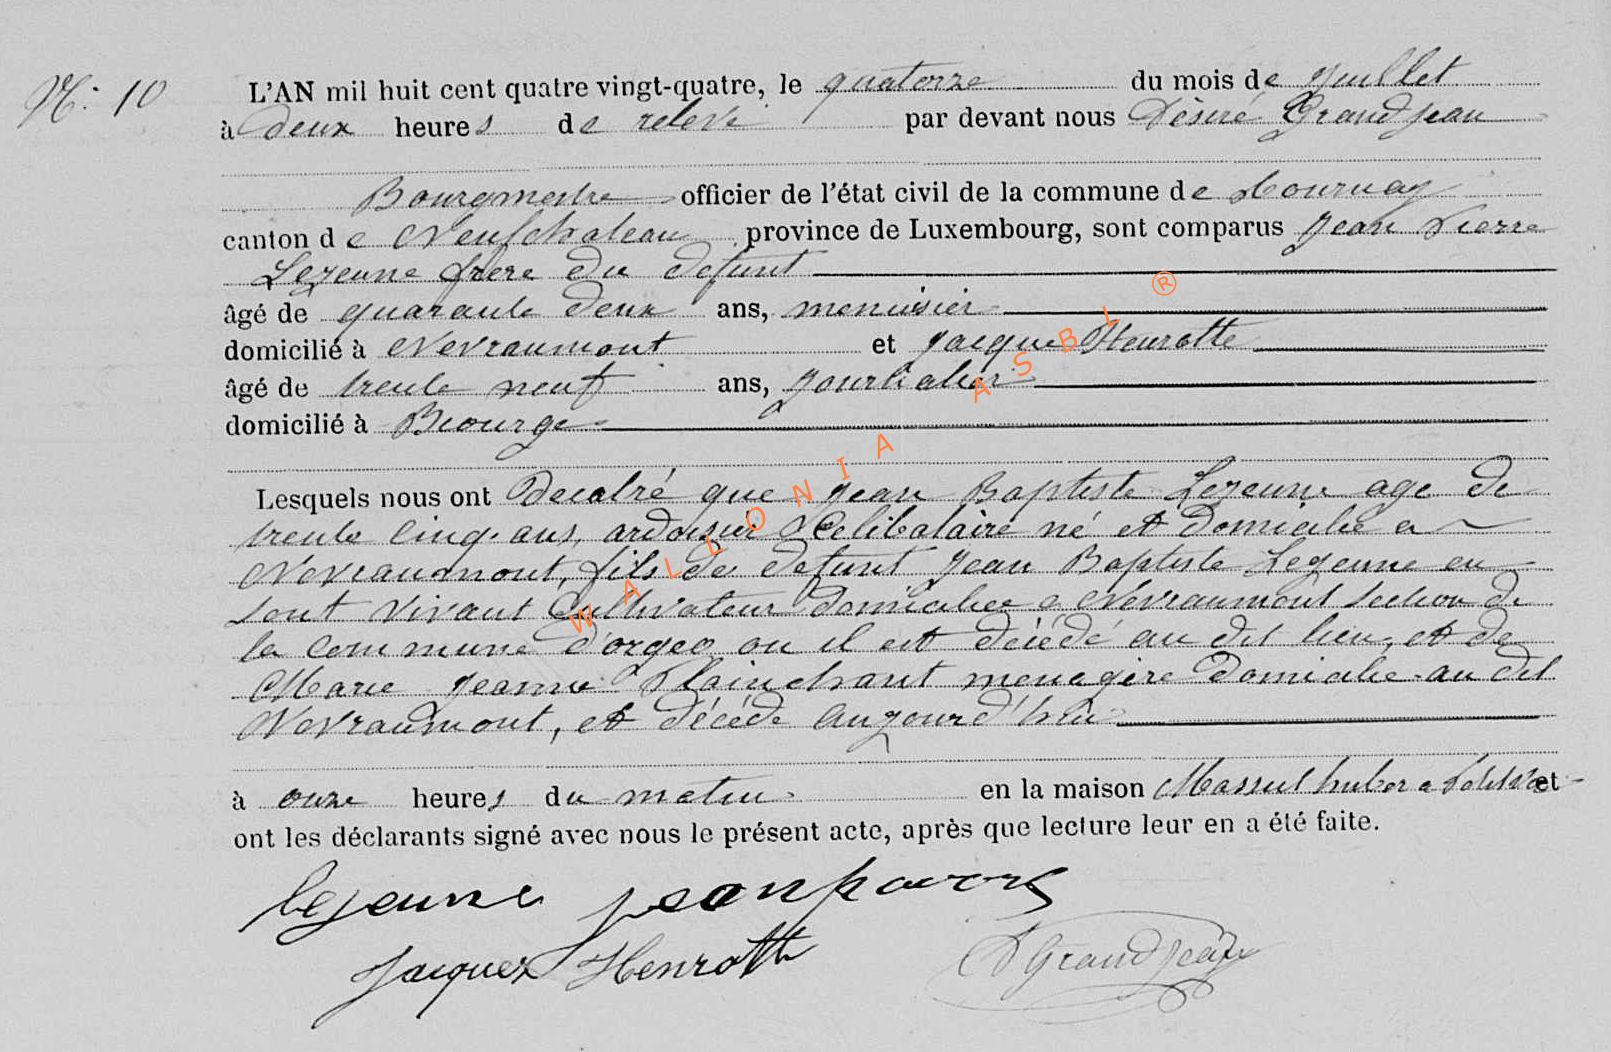 N: 10
L'AN mil huit cent quatre vingt-quatre, le quatorze du mois de Juillet
à deux heures de relevé par devant nous Désiré Grandjean
Bourgmestre officier de l'état civil de la commune de Tournay
canton de Neufchateau province de Luxembourg, sont comparus Jean Pierre
Lejeune frere du defunt
âgé de quarante deux ans, menuisier
domicilié à Nevraumont et Jacque Henrotte
âgé de trente neuf ans, Journalier
domicilié à Biourge
Lesquels nous ont decalré que Jean Baptiste Lejeune age de
trente cinq ans, ardoisier Celibataire né et domicilié a
Nevraumont, fils de defunt Jean Baptiste Lejeune en
sont vivant Cultivateur domiciliee a Nevraumont section de
la commune d'orgeo ou il est décédé au dit lieu, et de
Marie Jeanne Plainchant menagère domicilié au dit
Nevraumont, et décédé aujourd'hui
à onze heures du matin en la maison Massul huber a et
ont les déclarants signé avec nous le présent acte, après que lecture leur en a été faite.
lejeune jean
Jacques Henrotte DGrandjean
WALLONIA ASBL ®